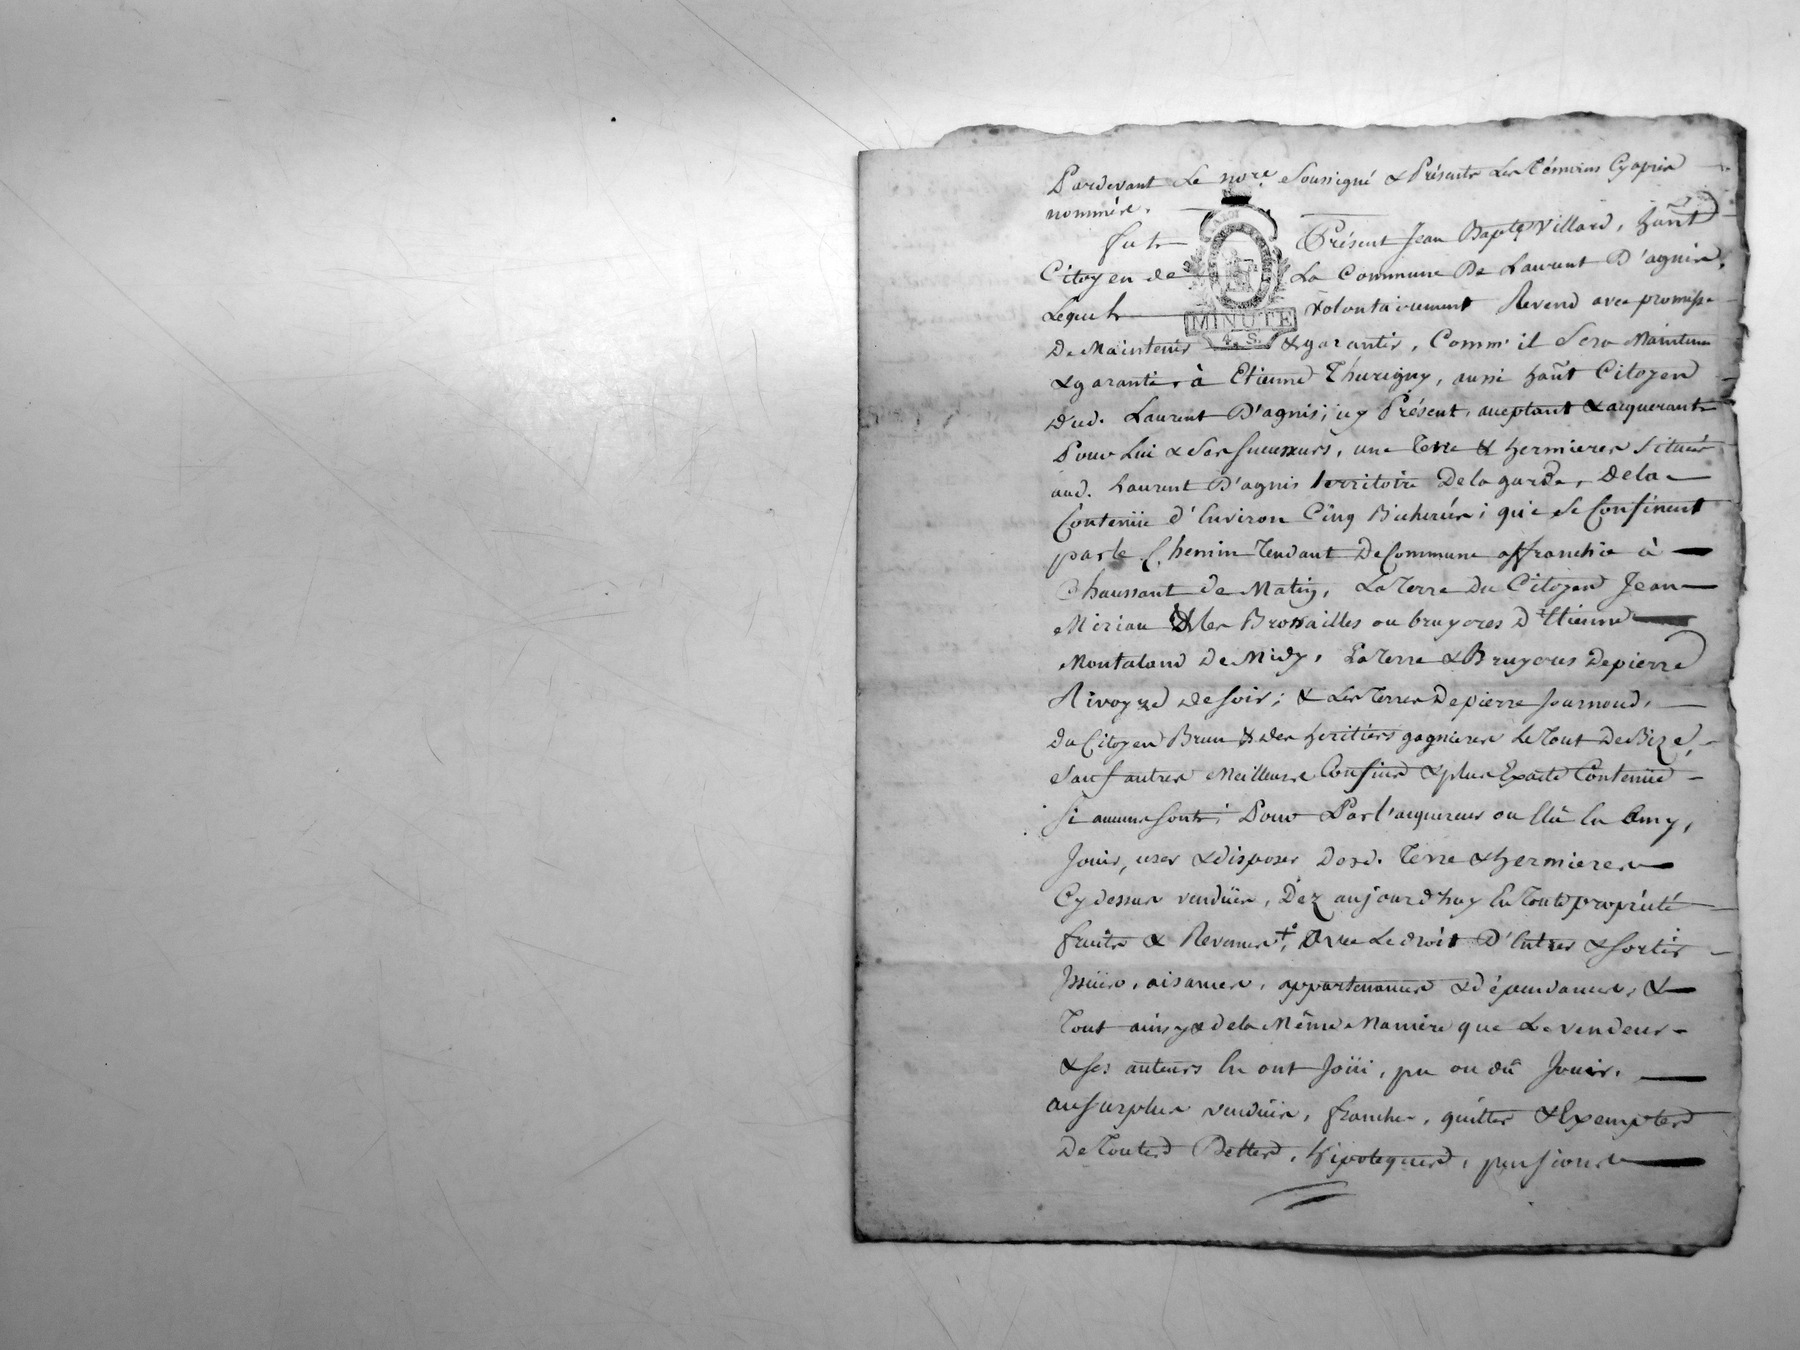 Pardevant Le no.re Soussigné & Présents Les Témoins Cyaprès
nommés.
fut Présent Jean Bapte Villard, hãnt
LA LOI
Citoyen de La Commune De Laurent D'agnis,
Lequel volontairement Revend avec promesse
MINUTE
De Maintenir & garantir, Comm' il Sera Maintenu
4. S.
& garanti, à Etienne Thurigny, aussi hãnt Citoyen
dud. Laurent D'agnis, icy Présent, acceptant & acquerant
Pour Lui & Ses Successeurs, une Terre & hermieres Situés
aud. Laurent D'agnis Territoire De la garde, De la
Contenüe d'Environ Cinq Bicherées; qui Se Confinent
par le Chemin Tendant De Commune affranchie à
Chaussant de Matin, La Terre Du Citoyen Jean
Miriau & les Brossailles ou bruyeres d'Etienne
Montaland De Midy, La Terre & Bruyeres De pierre
Rivoyre de Soir; & Les Terres De pierre Journoud,
du Citoyen Brun & des heritiers gagnieres Le Tout De Bize,
Sauf autres Meilleurs Confins & plus Exacte Contenüe
Si aucuns sont; Pour Par l'acquereur ou Elû En Amy,
Jouir, user & disposer Desd. Terre & hermieres
Cy dessus vendües, Dez aujourd'huy En Toute propriété
fruits & Revenus +, Avec Le droit D'Entrer & Sortir
Issües, aisances, appartenances & dépendances, &
Tout ainsy & de la Même Manière que Le vendeur
& Ses auteurs En ont Joüi, pu ou dû Jouir.
au Surplus vendües, franches, quittes & Exemptes
De Toutes Dettes, hipoteques, pensions